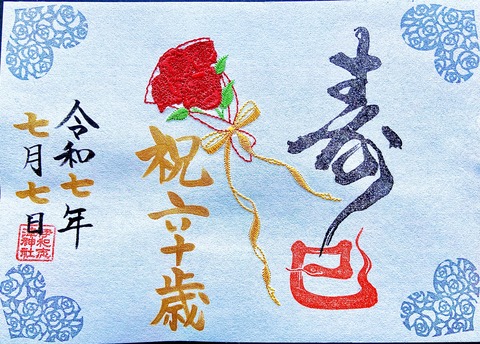 寿
巳
祝六十歳
令和七年
七月七日